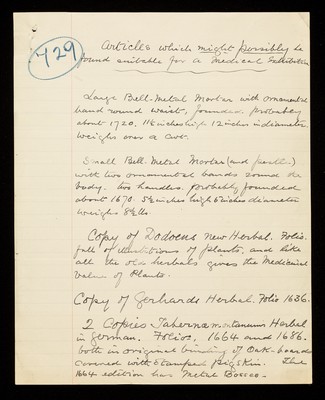 429
Articles which might possibly be
found suitable for a Medical Exhibition
Large Bell-Metal Mortar with ornamental
band round waist, founder. probably
about 1720. 11½ inches high 12 inches in diameter
weighs over a cwt.
Small Bell. Metal Mortar (and pestle.)
with two ornamental bands round the
body. two handles. probably founded
about 1670. 5½ inches high 6 inches diameter
weighs 8½ lbs.
Copy of Dodoens New Herbal. Folio.
full of illustrations of plants, and like
all the old herbals gives the Medicinal
value of Plants.
Copy of Gerhards Herbal. Folio 1636.
2 Copies Tabernæmontanus Herbal
in German. Folios, 1664 and 1686.
both in original binding of Oak-boards
covered with stamped Pigskin. The
1664 edition has Metal Bosses.